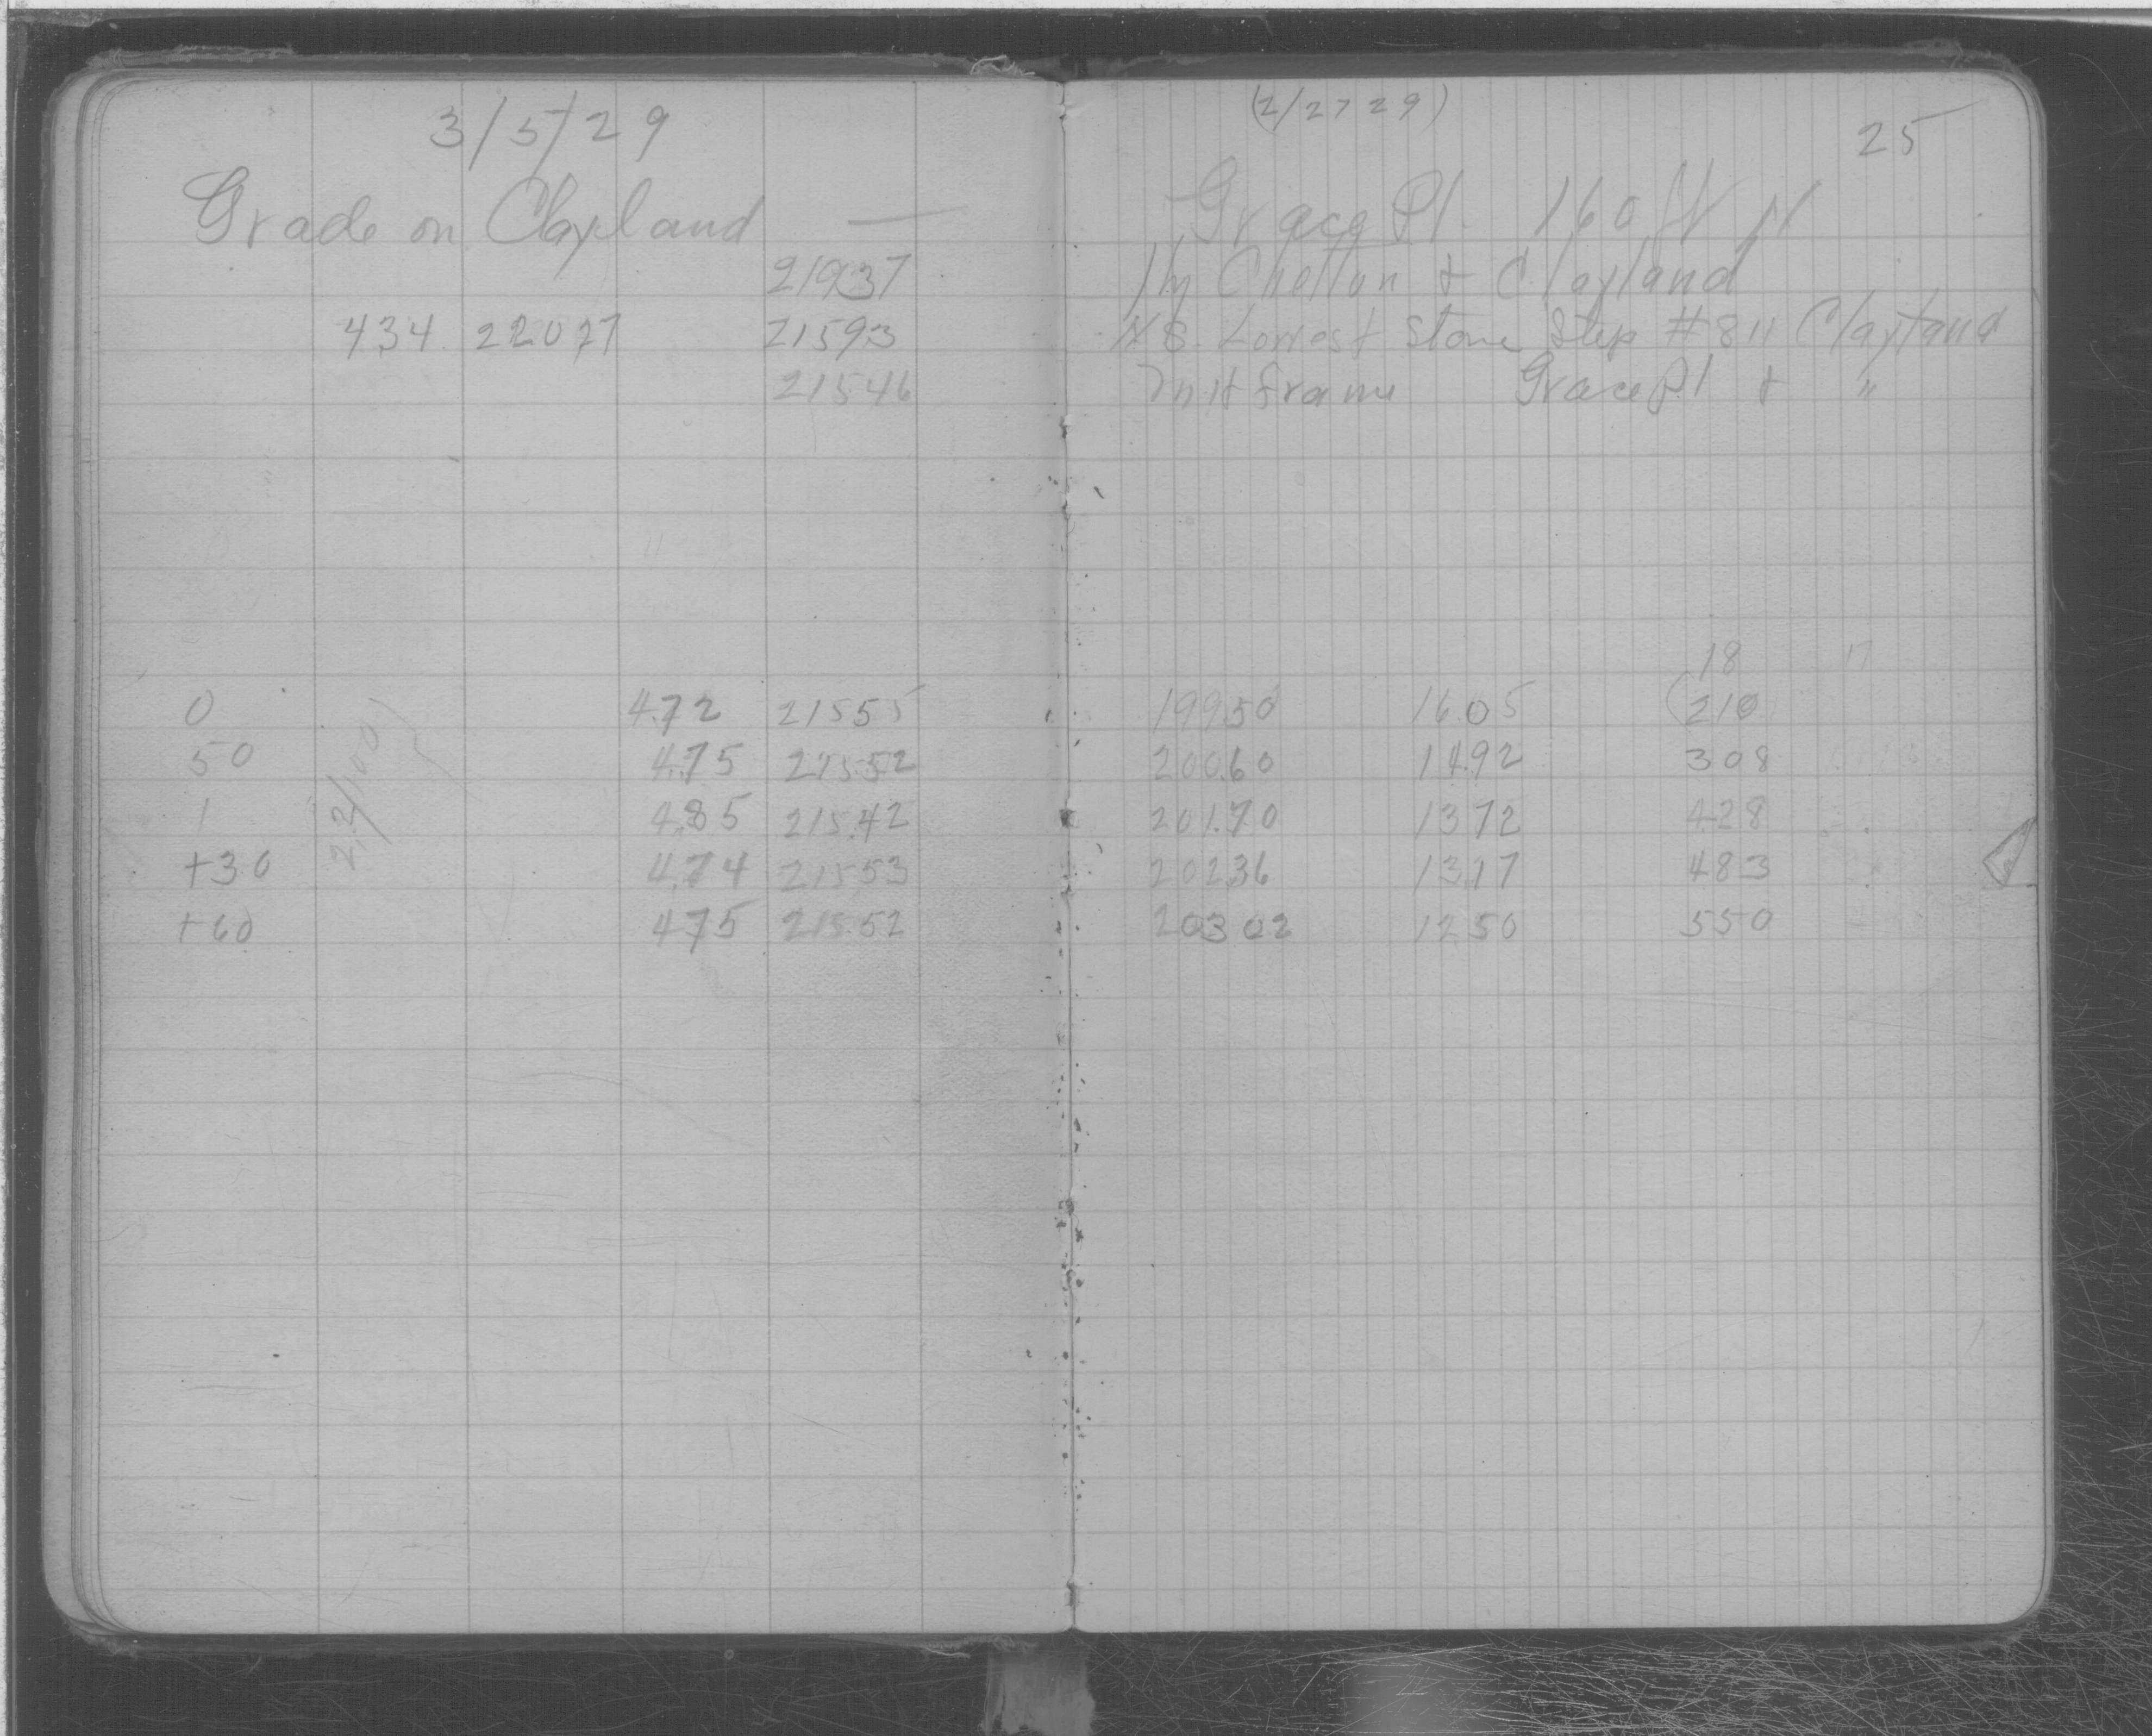 3/5/29
Grade on Clayland —
21937
434 22027 21593
21546
0 4.72 21555
50 4.75 21552
1 4.85 215.42
+30 4.74 21553
+60 475 21552
2.2/100
(2/27 29)
25
Grace Pl. 160 ft N
Chelton + Clayland
Lowest Stone Step #811 Clayland
M H frame Grace Pl + "
18 17
199.50 16.05 (210
200.60 14.92 308
201.70 1372 428
202.36 13.17 483
203 02 12.50 550